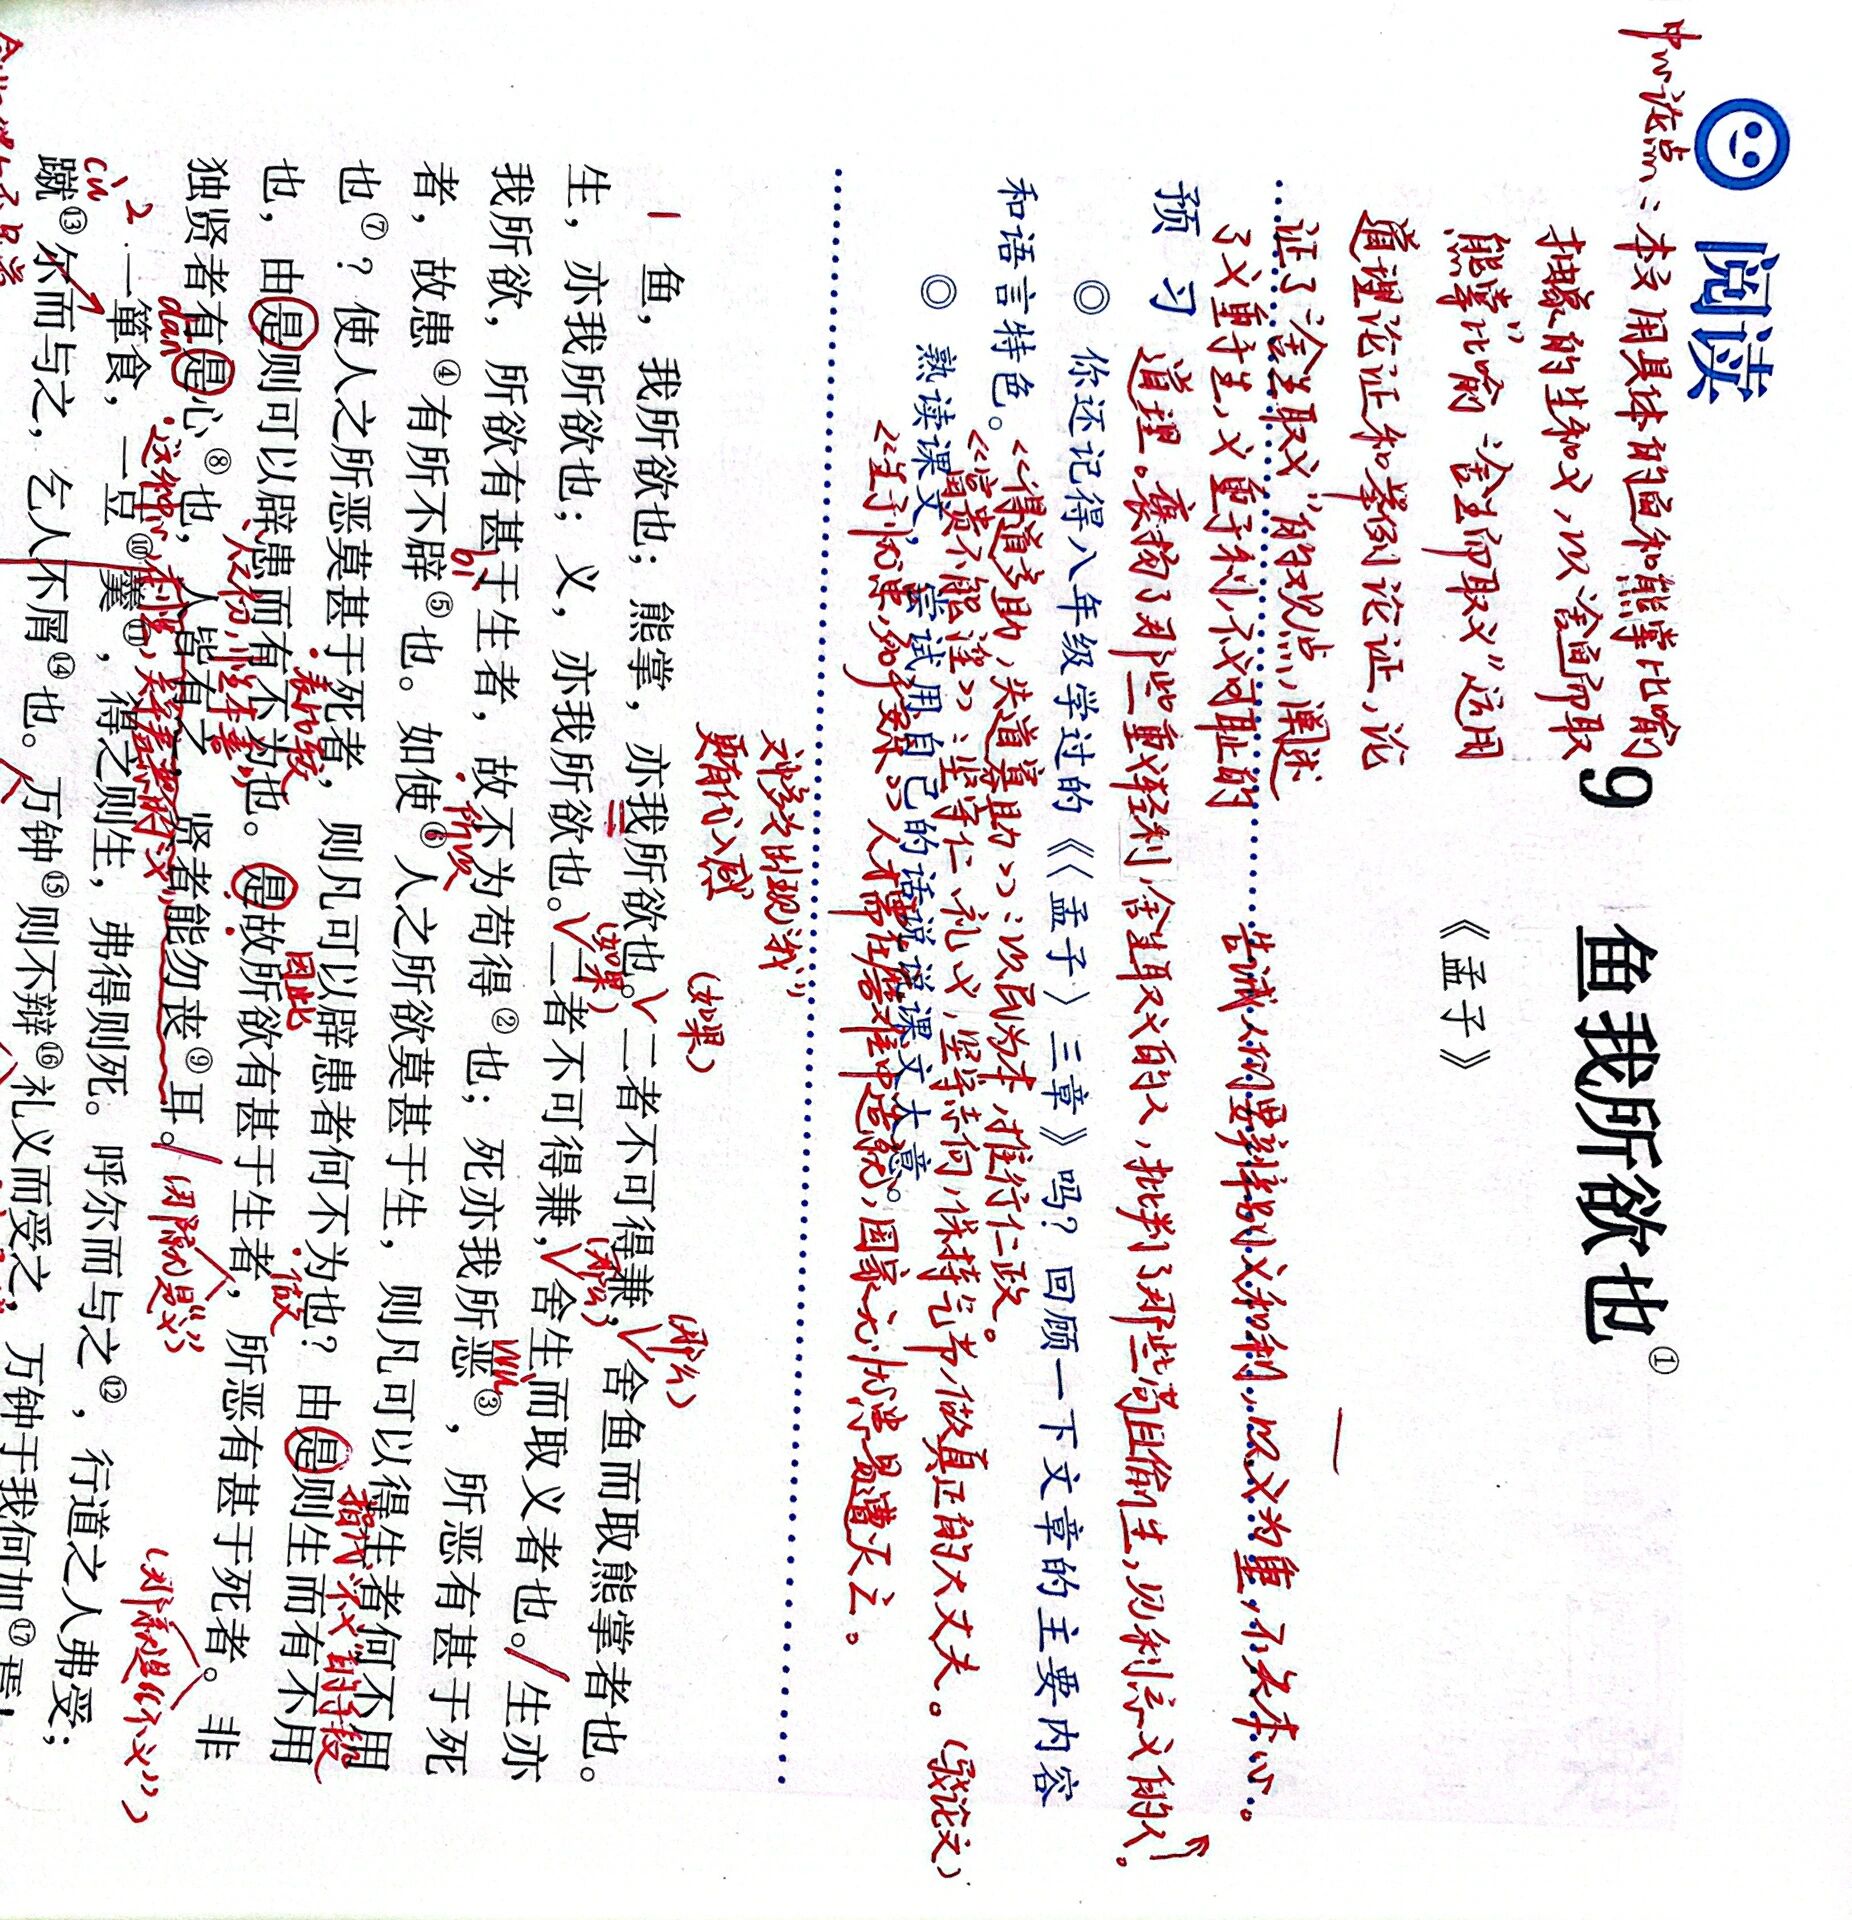 阅读
中心论点：本文用具体的鱼和熊掌比喻
抽象的生和义，以“舍鱼而取
熊掌”比喻“舍生而取义”运用
道理论证和举例论证，论
证了“舍生取义”的观点，阐述
了义重于生，义重于利，不义可耻的
道理。褒扬了那些重义轻利，舍生取义的人，批判了那些苟且偷生，见利忘义的人。
告诫人们要辨别义和利，以义为重，不失本心。
9 鱼我所欲也①
《孟子》
预习
◎ 你还记得八年级学过的《〈孟子〉三章》吗？回顾一下文章的主要内容
和语言特色。
《得道多助，失道寡助》：以民为本，推行仁政。
《富贵不能淫》：坚守仁、礼、义，坚持志向，保持气节，做真正的大丈夫。（驳论文）
◎ 熟读课文，尝试用自己的话说说课文大意。
《生于忧患，死于安乐》人才需在苦难中造就，国家无忧患易遭灭亡。
对偶
多次出现“我”
更有代入感
（如果）
（那么）
1 鱼，我所欲也；熊掌，亦我所欲也。二者不可得兼，舍鱼而取熊掌者也。
（如果）
（那么）
生，亦我所欲也；义，亦我所欲也。二者不可得兼，舍生而取义者也。生亦
我所欲，所欲有甚于生者，故不为苟得②也；死亦我所恶③，所恶有甚于死
bì
所以
wù
者，故患④有所不辟⑤也。如使⑥人之所欲莫甚于生，则凡可以得生者何不用
也⑦？使人之所恶莫甚于死者，则凡可以辟患者何不为也？由是则生而有不用
表比较
做
指代“不义”的手段
也，由是则可以辟患而有不为也。是故所欲有甚于生者，所恶有甚于死者。非
因此
独贤者有是心⑧也，人皆有之，贤者能勿丧⑨耳。
（用院是“义”）
（那就是“不义”）
dān
2 一箪食，一豆⑩羹⑪，得之则生，弗得则死。呼尔而与之⑫，行道之人弗受；
cù
蹴⑬尔而与之，乞人不屑⑭也。万钟⑮则不辩⑯礼义而受之，万钟于我何加⑰焉！